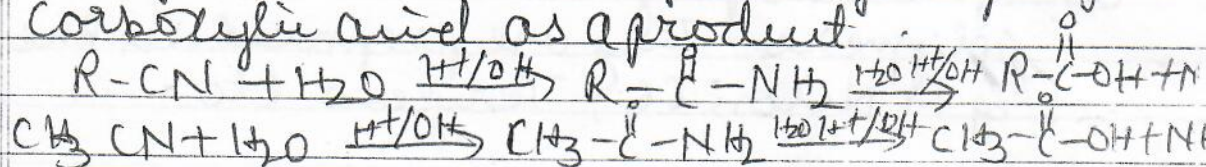 corboxylic acid as a product.
R-CN + H2O H+/OH → R-C(=O)-NH2 H2O H+/OH → R-C(=O)-OH + N
CH3 CN + H2O H+/OH → CH3-C(=O)-NH2 H2O H+/OH → CH3-C(=O)-OH + NH